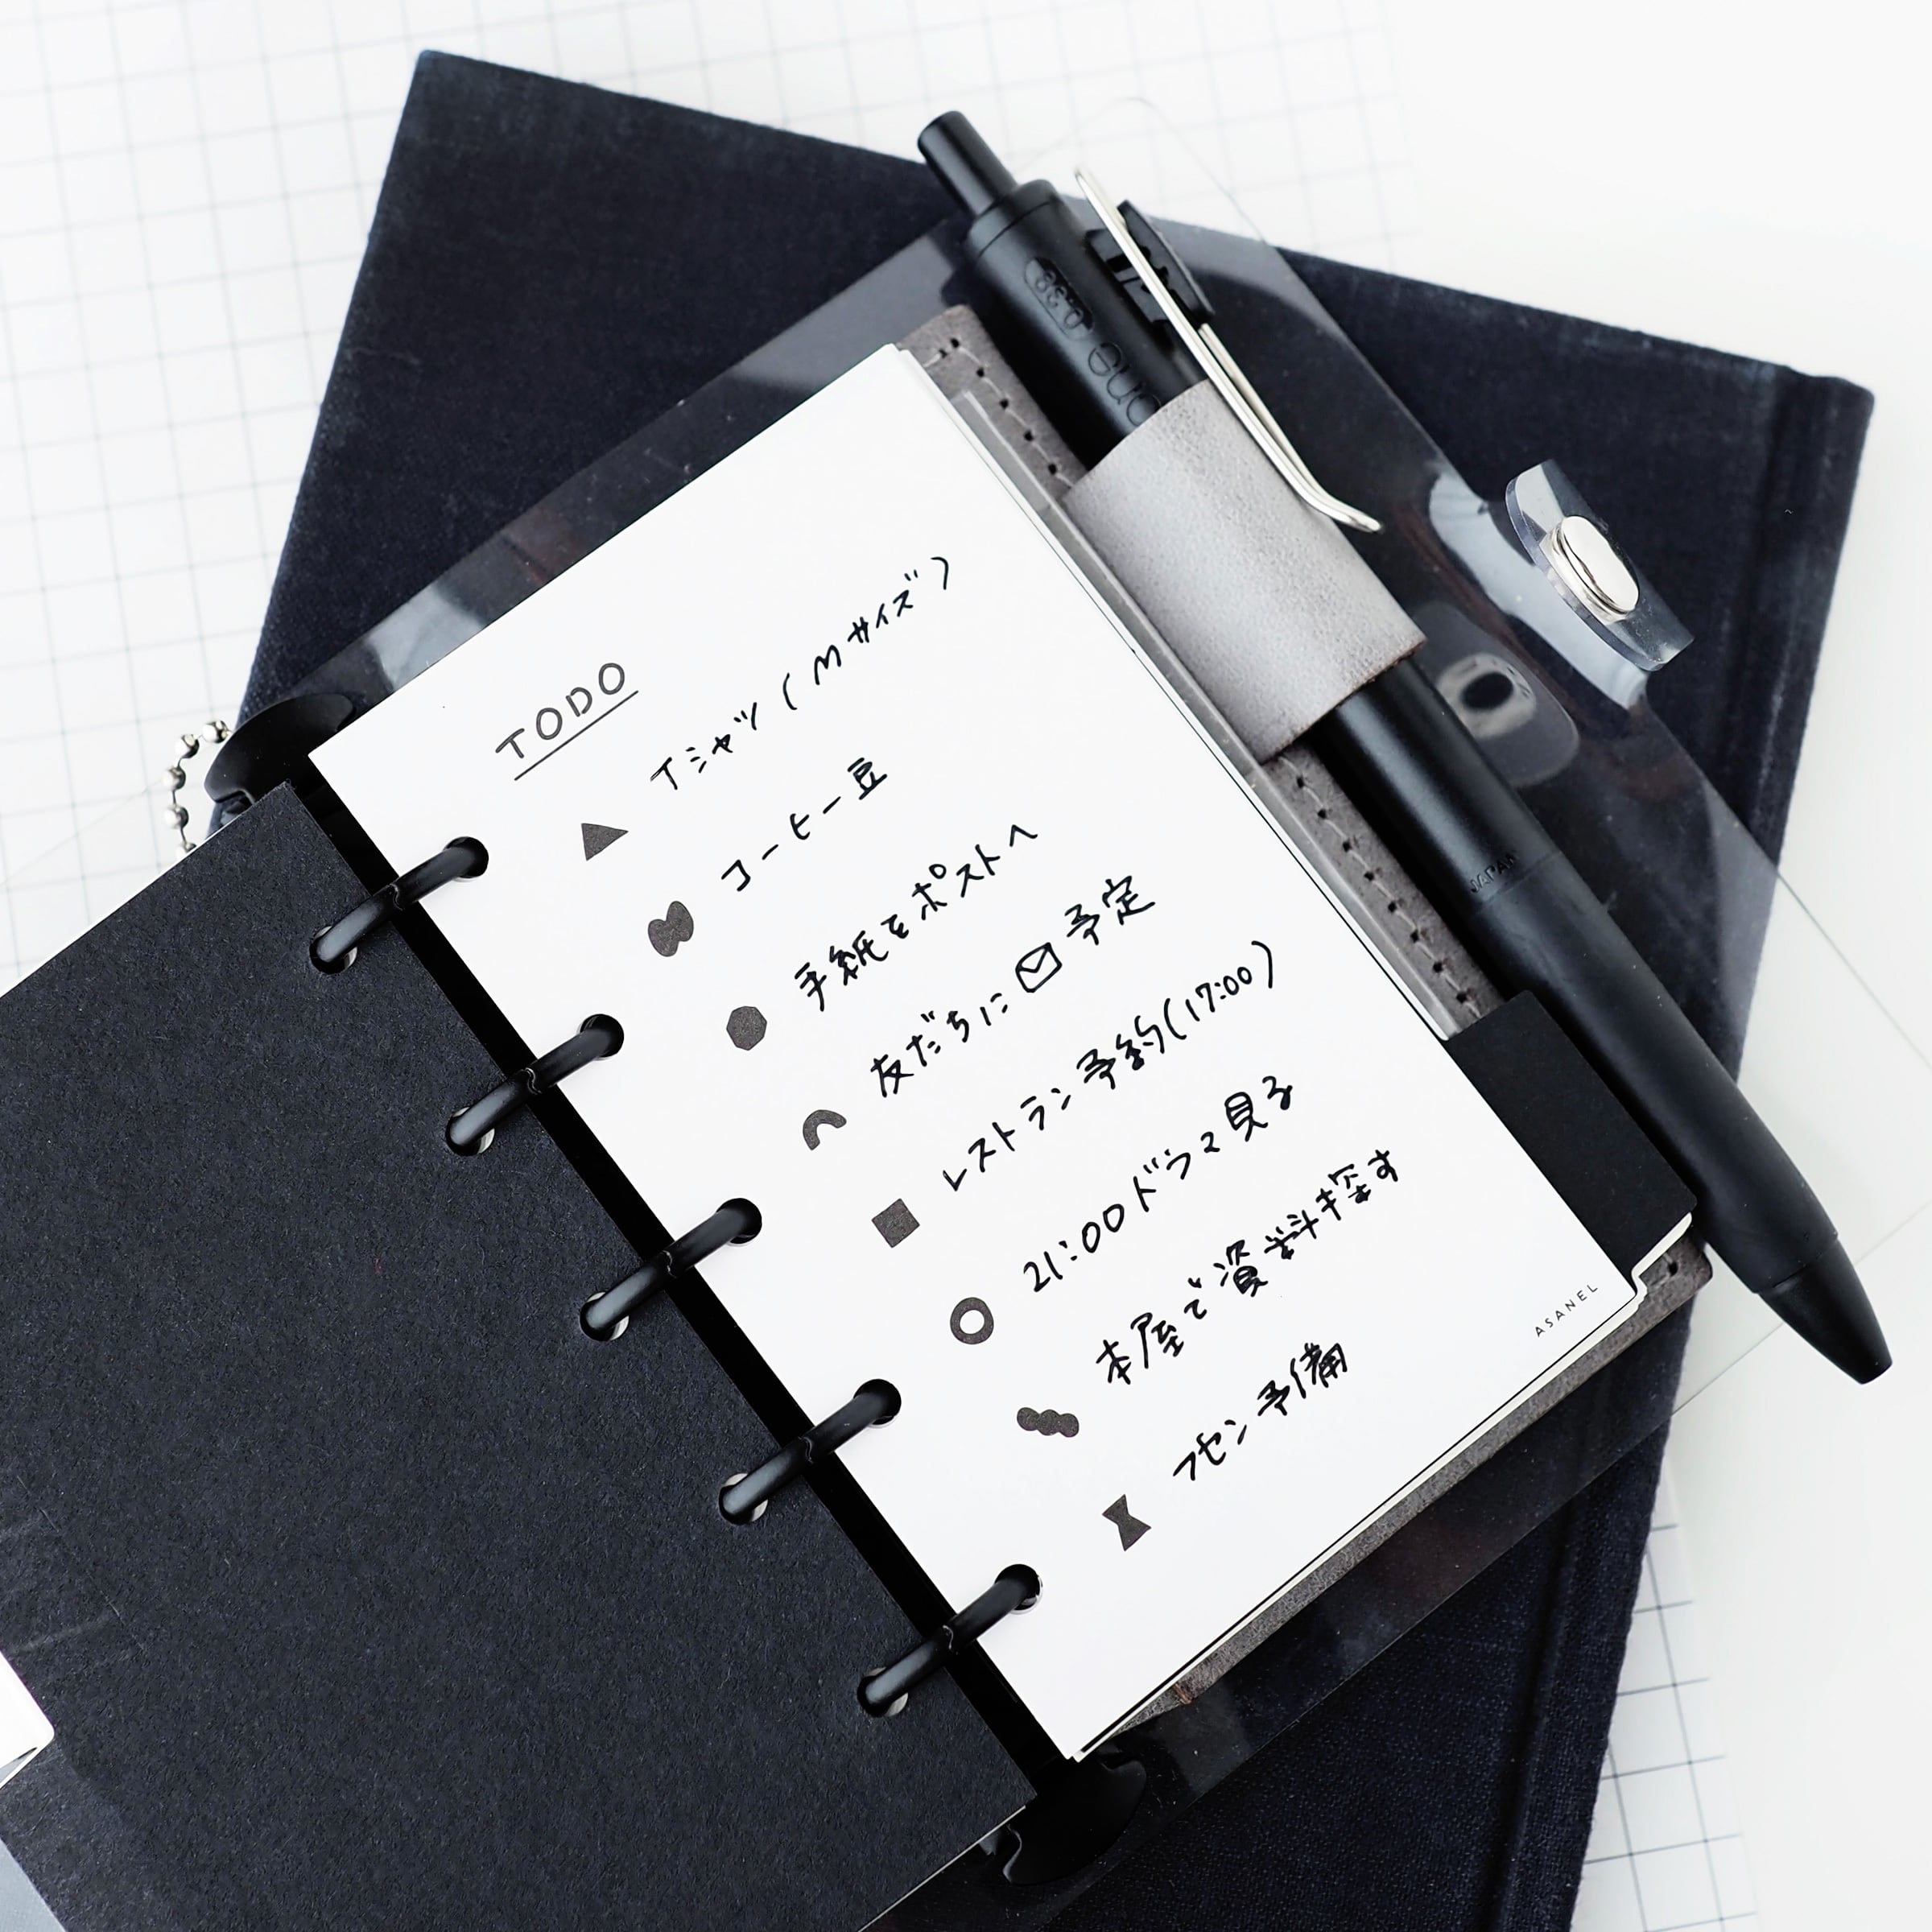 TODO
Tシャツ(Mサイズ)
コーヒー豆
手紙をポストへ
友だちに✉予定
レストラン予約(17:00)
21:00ドラマ見る
本屋で資料探す
フセン予備
ASANEL
0.38
one
JAPAN